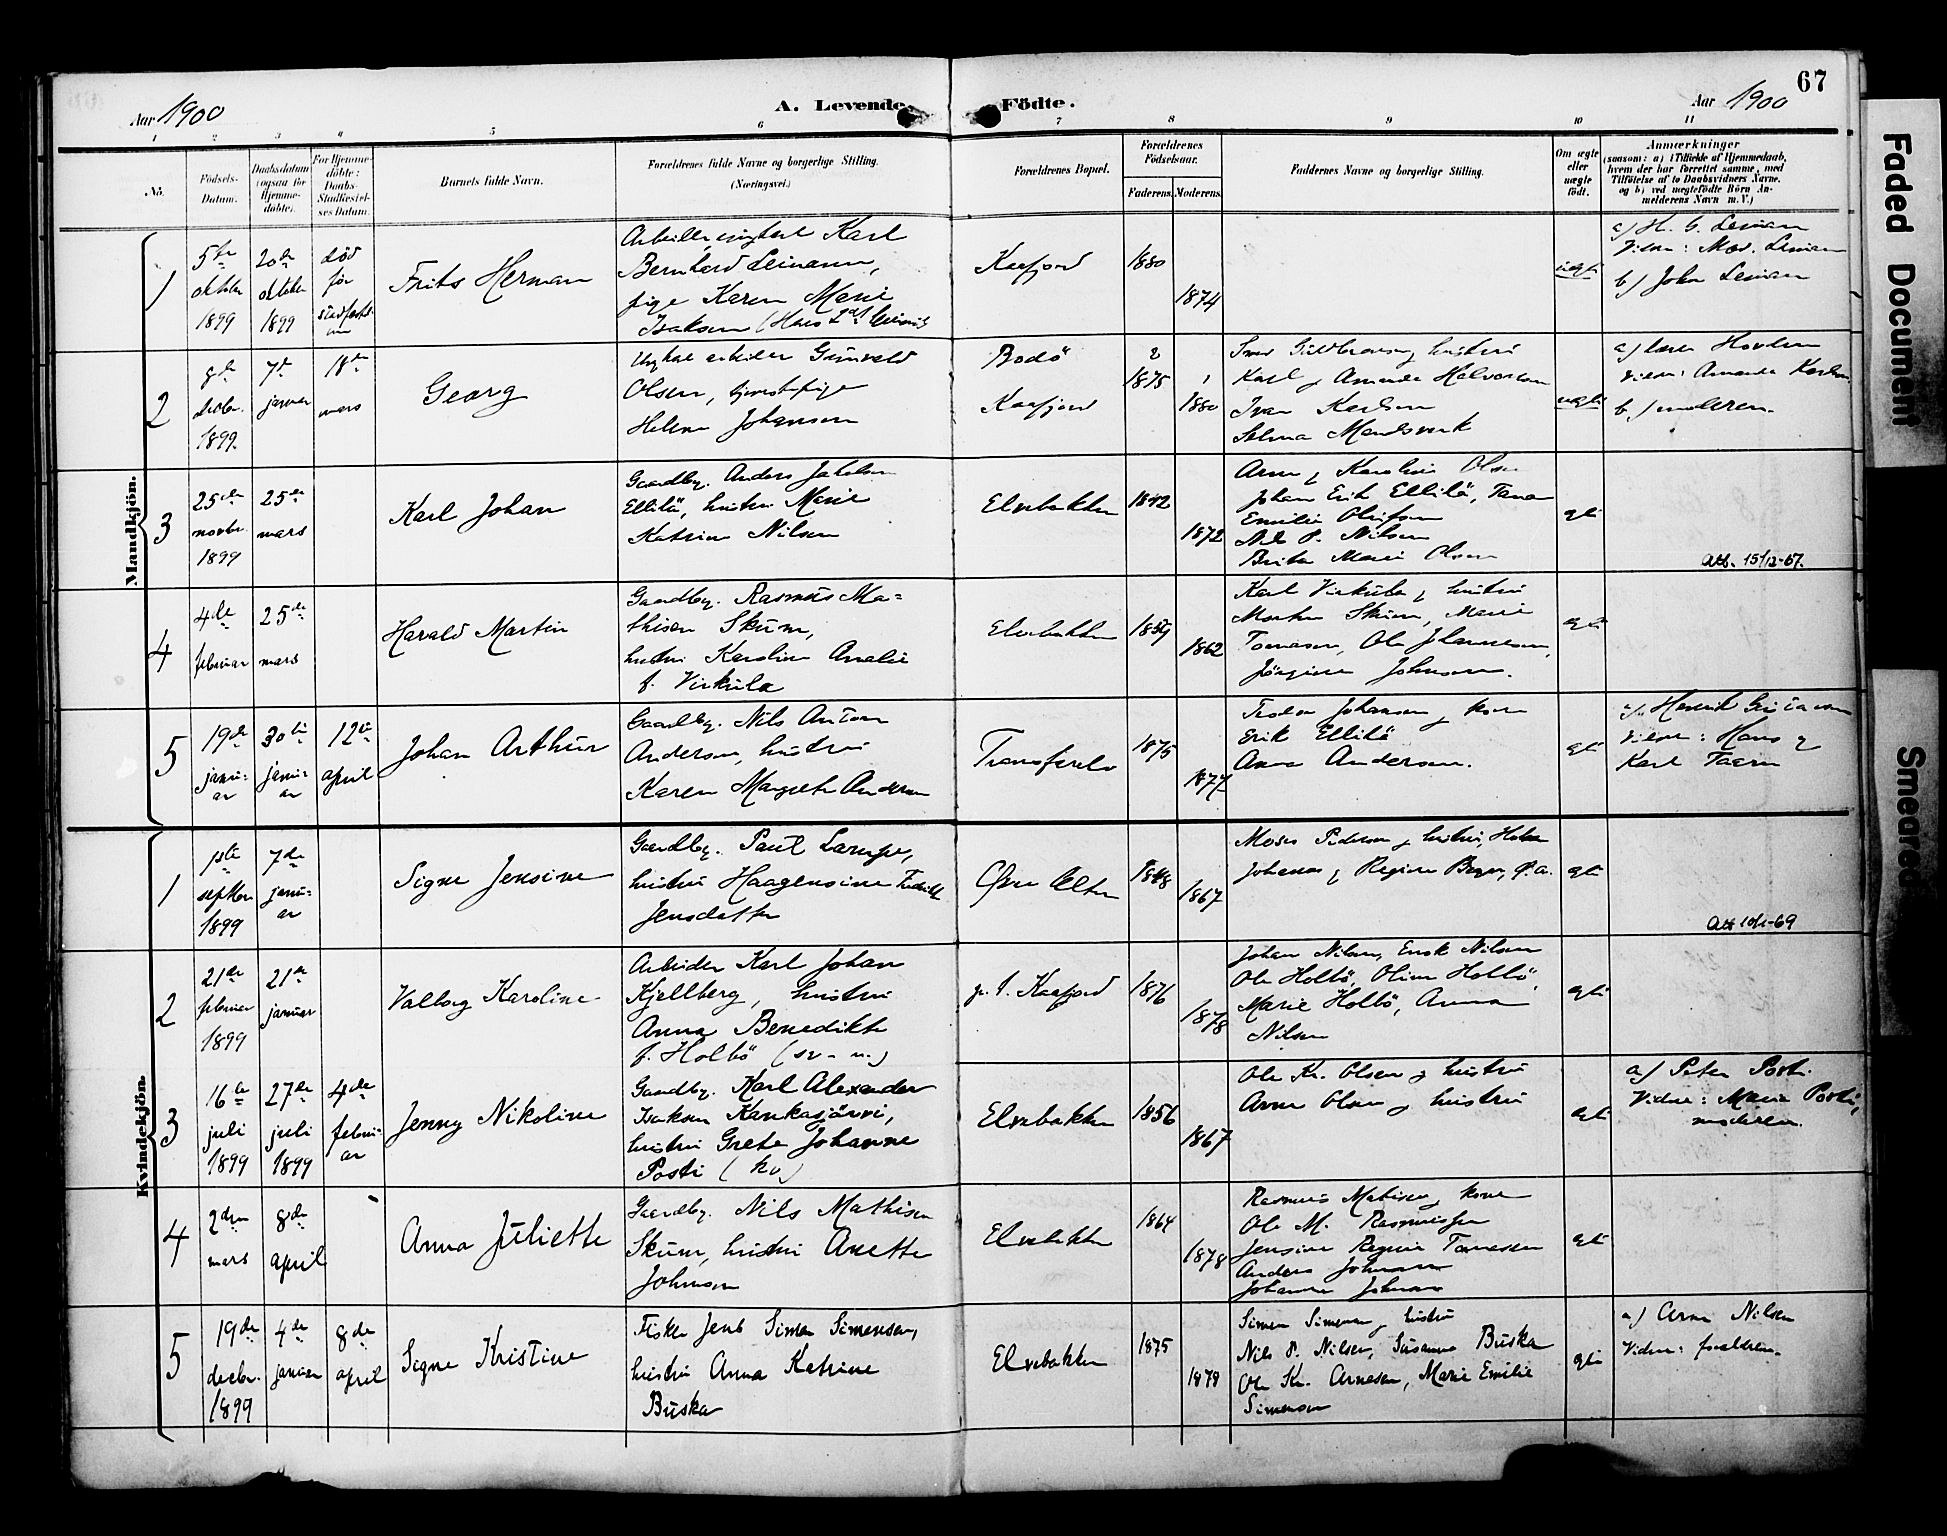 67
Aar 1900
A. Levende Födte.
Aar 1900
1 2 3 4 5 6 7 8 9 10 11
No.
Födsels-
Datum.
Daabsdatum
(ogsaa for
Hjemme-
döbte).
For Hjemme-
döbte:
Daabs-
Stadfæstel-
ses Datum.
Barnets fulde Navn.
Forældrenes fulde Navne og borgerlige Stilling.
(Næringsvei.)
Forældrenes Bopæl.
Forældrenes
Födselsaar.
Faderens.
Moderens.
Faddernes Navne og borgerlige Stilling.
Om ægte
eller
uægte
födt.
Anmærkninger
(saasom: a) i Tilfælde af Hjemmedaab,
hvem der har forrettet samme, med
Tilföielse af to Daabsvidners Navne,
og b) ved uægtefödte Börn An-
melderens Navn m. V.)
Mandkjön.
1
5te
oktober
1899
20de
oktober
1899
død
før
stadfæst-
Frits Herman
Karl
Bernhard Leinann,
pige Karen Marie
Isaksen
Kaafjord
1880
1874
uægte
a) H. G. Leinan
Vidner:
b) John Leinan
2
8de
decbr.
1899
7de
januar
18de
mars
Georg
Ungkarl arbeider
Olsen, tjenestepige
Helene Johansen
Bodö
Kaafjord
1875
1880
hustru
Karl og Amanda Halvorsen
Ivar Karlsen
Selma
uægte
a)
Vidner: Amanda Karlsen
b) moderen.
3
25de
novbr.
1899
25de
mars
Karl Johan
Gaardbr. Anders Jakobsen
Ellilä, hustru Marie
Katrine Nilsen
Elvebakken
1842
1872
Arne og Karoline Olsen
Johan Erik Ellilä,
Emilie Olufsen
Nils P. Nilsen
Brita Marie Olsen
egte
Att. 15/12-67.
4
4de
februar
25de
mars
Harald Martin
Gaardbr. Rasmus Ma=
thisen Skum,
hustru Karoline Amalie
f. Virkula
Elvebakken
1859
1862
Karl Virkula og hustru
Morten Skum, Marie
Tomasen, Ole Johannesen,
Jörgine Johnsen.
egte
5
19de
janu-
ar
30te
janu-
ar
12te
april
Johan Arthur
Gaardbr. Nils Anton
Andersen, hustru
Karen Margrete Andersen
Transfarelv
1875
1877
Johansen og kone
Erik Ellilä
Anna Andersen.
egte
a) Henrik
Vidner: Hans og
Karl
Kvindekjön.
1
1ste
septbr.
1899
7de
janu-
ar
Signe Jensine
Gaardbr. Paul Lampe,
hustru Haagensine Fredrikke
Jensdatter
Öfre Alten
1848
1867
Moses Pedersen og hustru,
Johannes og Regine
egte
Att 10/1-69
2
21de
februar
1899
21de
januar
Valborg Karoline
Arbeider Karl Johan
Kjellberg, hustru
Anna Benedikte
f. Holbö (sv-n.)
Kaafjord
1876
1878
Johan Nilsen, Nilsen
Ole Holbö, Oline Holbö,
Marie Holbö, Anna
Nilsen
egte
3
16de
juli
1899
27de
juli
1899
4de
febru-
ar
Jenny Nikoline
Gaardbr. Karl Alexander
Isaksen Kankasjärvi,
hustru Grete Johanne
Posti (kv.)
Elvebakken
1856
1867
Ole Kr. Olsen og hustru
Arne Olsen og hustru
egte
a) Peter Posti.
Vidner: Maria Posti,
moderen.
4
2den
mars
8de
april
Anna Juliette
Gaardbr. Nils Mathisen
Skum, hustru Anette
Johnsen
Elvebakken
1864
1878
Rasmus Mathisen, kone
Ole M. Rasmussen
Jensine Regine Tomassen
Anders Johnsen
Johanna Johnsen
egte
5
19de
decbr.
1899
4de
januar
8de
april
Signe Kristine
Fisker Jens Simon Simonsen,
hustru Anna Katrine
Buska
Elvebakken
1875
1879
Simon Simonsen og hustru
Nils P. Nilsen, Susanna Buska
Ole Kr. Arnesen, Marie Emilie
Simonsen
egte
a) Arne Nilsen
Vidner: forældrene.
Faded Document
Smeared